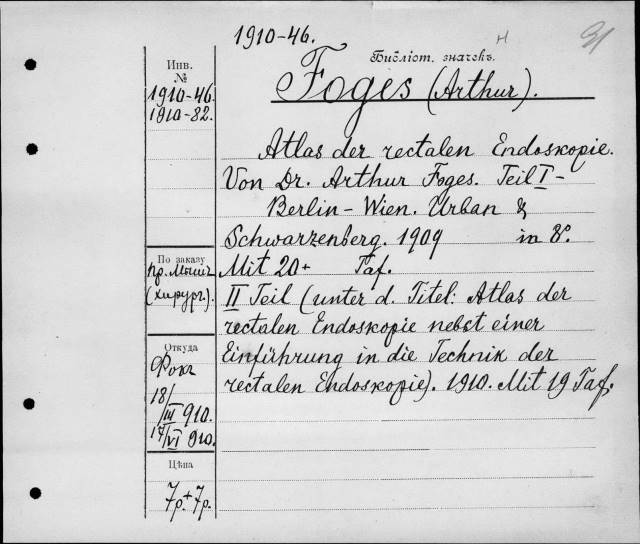 1910-46.
Н
31
Библіот. значекъ.
Foges (Arthur).
Инв.
№
1910-46.
1910-82.
Atlas der rectalen Endoskopie.
Von Dr. Arthur Foges. Teil I-
Berlin-Wien. Urban &
Schwarzenberg. 1909 in 8.
По заказу
(хирург.).
Mit 20+ Taf.
II Teil (unter d. Titel: Atlas der
rectalen Endoskopie nebst einer
Einführung in die Technik der
rectalen Endoskopie). 1910. Mit 19 Taf.
Откуда
Фокъ
18/III 910.
17/VI 910.
Цѣна
7р.+7р.